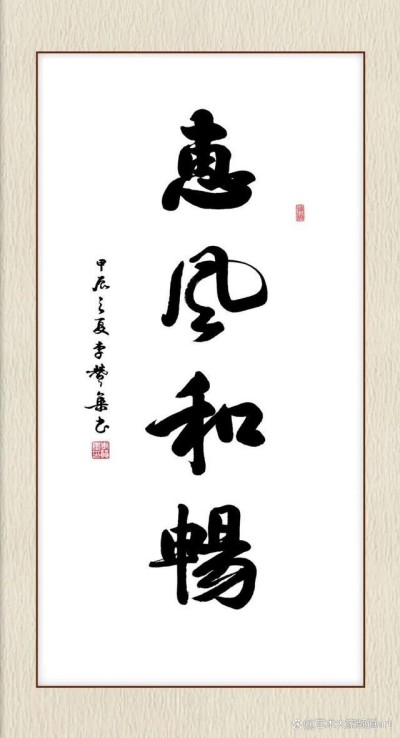 惠風和暢
甲辰之夏李贊集书